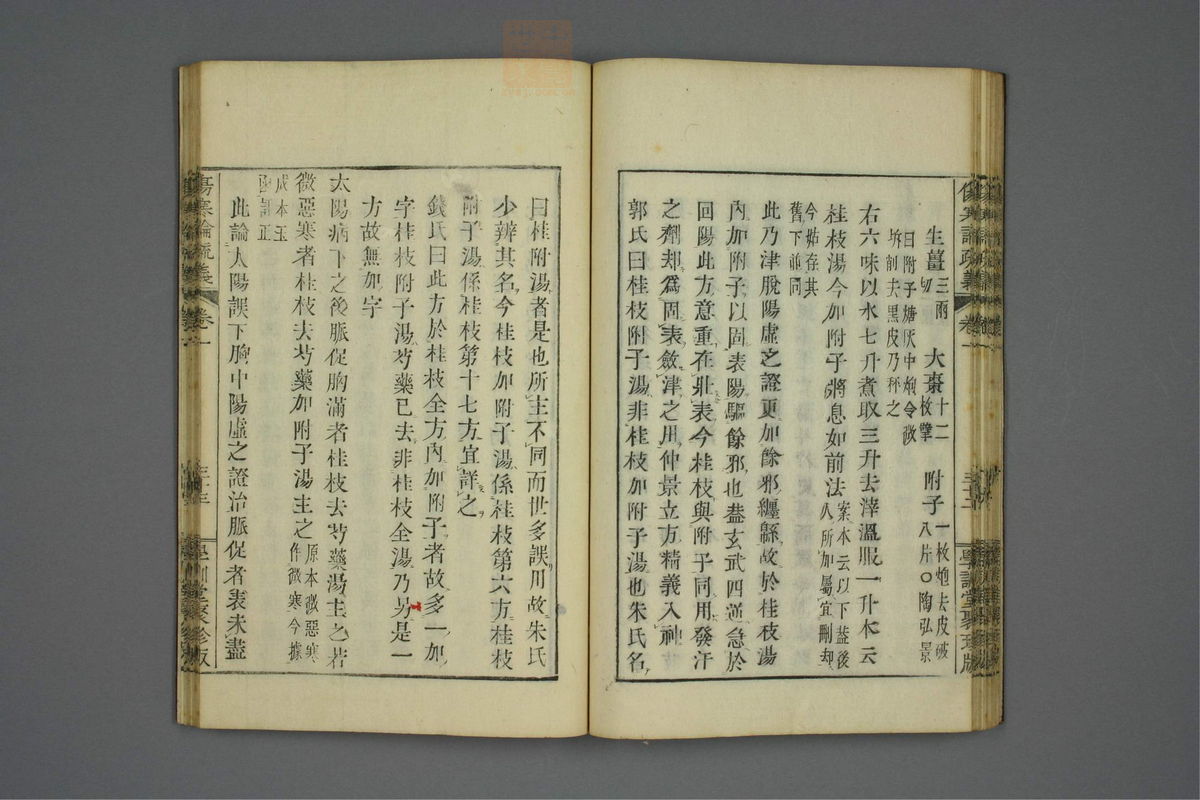 生薑三兩切 大棗十二枚擘 附子一枚炮去皮破八片〇陶弘景
曰附子煻灰中炮令微
坼削去黑皮乃秤之
右六味以水七升煮取三升去滓溫服一升本云
桂枝湯今加附子將息如前法案本云以下蓋後人所加屬宜刪却
今姑存其
舊下並同
此乃津脫陽虛之證更加餘邪纏緜故於桂枝湯
內加附子以固表陽驅餘邪也蓋玄武四逆急於
回陽此方意重在壯表今桂枝與附子同用發汗
之劑却爲固表斂津之用仲景立方精義入神
郭氏曰桂枝附子湯非桂枝加附子湯也朱氏名
曰桂附湯者是也所主不同而世多誤用故朱氏
少辨其名今桂枝加附子湯係桂枝第六方桂枝
附子湯係桂枝第十七方宜詳之
錢氏曰此方於桂枝全方內加附子者故多一加
字桂枝附子湯芍藥已去非桂枝全湯乃另是一
方故無加字
太陽病下之後脈促胸滿者桂枝去芍藥湯主之若
微惡寒者桂枝去芍藥加附子湯主之原本微惡寒作微寒今據
成本玉
函訂正
此論太陽誤下胸中陽虛之證治脈促者表未盡
傷寒論疏義 卷一 學訓堂聚珍版